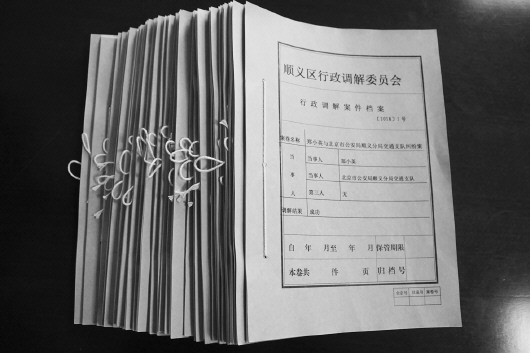 顺义区行政调解委员会
行政调解案件档案
〔2018〕1 号
案卷名称 郑小英与北京市公安局顺义分局交通支队纠纷案
当事人 当事人 郑小英
当事人 北京市公安局顺义分局交通支队
第三人 无
调解结果 成功
自 年 月至 年 月 保管期限
本卷共 件 页 归档号